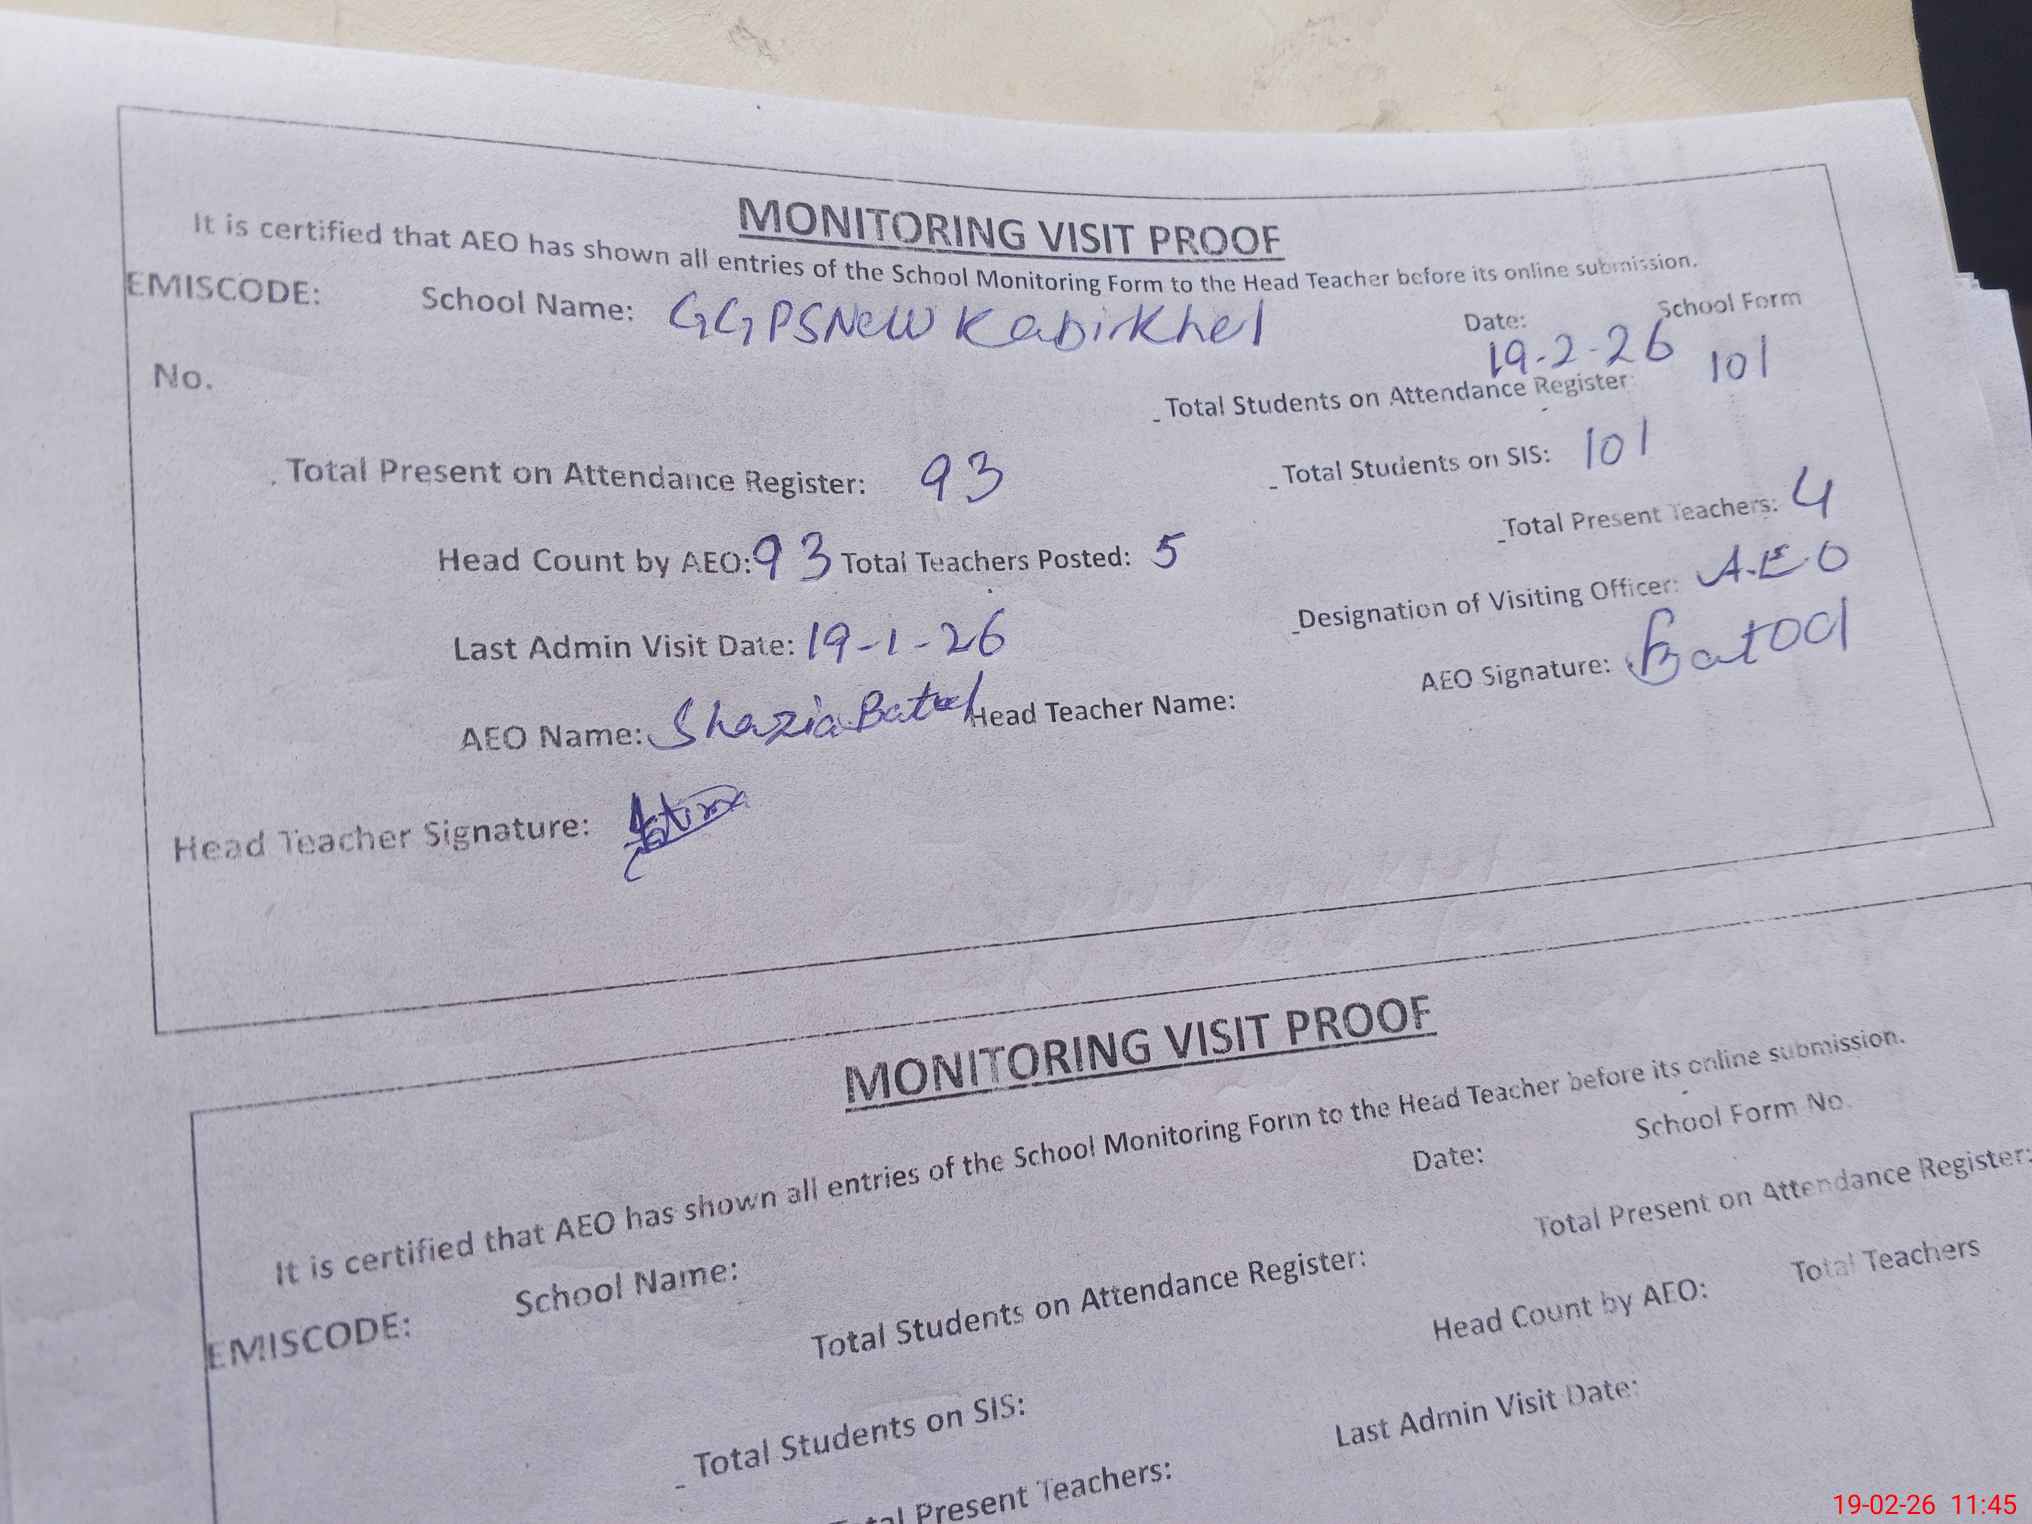 MONITORING VISIT PROOF
It is certified that AEO has shown all entries of the School Monitoring Form to the Head Teacher before its online submission.
EMISCODE: School Name: GGPSNeW Kabirkhel Date: 19-2-26 School Form
No.
Total Students on Attendance Register: 101
Total Present on Attendance Register: 93 Total Students on SIS: 101
Head Count by AEO: 93 Total Teachers Posted: 5 Total Present Teachers: 4
Last Admin Visit Date: 19-1-26 Designation of Visiting Officer: A.E.O
AEO Name: Shazia Batool Head Teacher Name: AEO Signature: Batool
Head Teacher Signature:
MONITORING VISIT PROOF
It is certified that AEO has shown all entries of the School Monitoring Form to the Head Teacher before its online submission.
EMISCODE: School Name: Date: School Form No.
Total Students on Attendance Register: Total Present on Attendance Register:
Total Students on SIS: Head Count by AEO: Total Teachers
Present Teachers: Last Admin Visit Date:
19-02-26 11:45